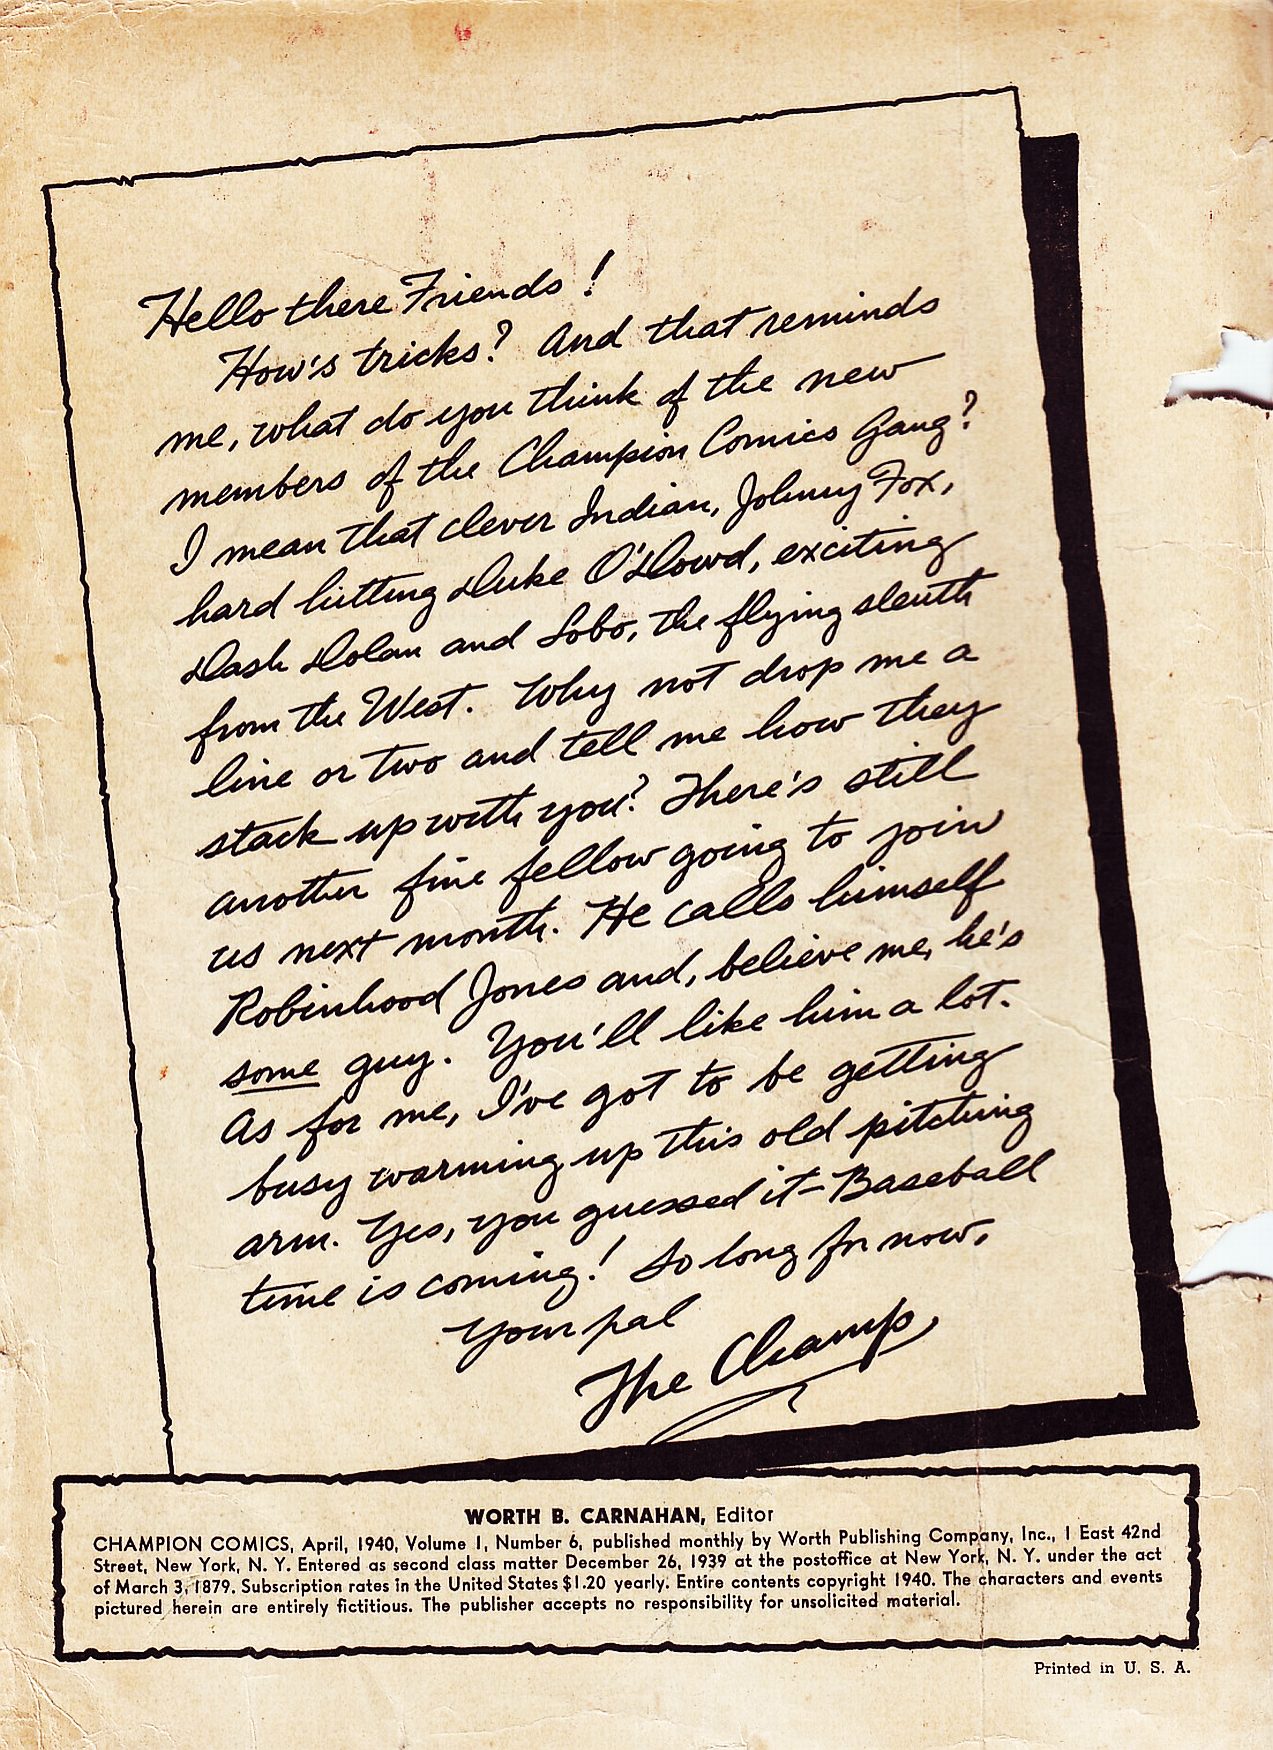 Hello there Friends!
How's tricks? And that reminds
me, what do you think of the new
members of the Champion Comics Gang?
I mean that clever Indian, Johnny Fox,
hard hitting Duke O'Dowd, exciting
Dash Dolan and Lobo, the flying sleuth
from the West. Why not drop me a
line or two and tell me how they
stack up with you? There's still
another fine fellow going to join
us next month. He calls himself
Robinhood Jones and, believe me, he's
some guy. You'll like him a lot.
As for me, I've got to be getting
busy warming up this old pitching
arm. Yes, you guessed it—Baseball
time is coming! So long for now,
Your pal
The Champ
WORTH B. CARNAHAN, Editor
CHAMPION COMICS, April, 1940, Volume I, Number 6, published monthly by Worth Publishing Company, Inc., 1 East 42nd
Street, New York, N. Y. Entered as second class matter December 26, 1939 at the postoffice at New York, N. Y. under the act
of March 3, 1879. Subscription rates in the United States $1.20 yearly. Entire contents copyright 1940. The characters and events
pictured herein are entirely fictitious. The publisher accepts no responsibility for unsolicited material.
Printed in U. S. A.